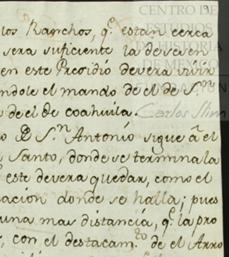 CENTRO DE
ESTUDIOS
DE HISTORIA
DE MEXICO
Carlos Slim
los Ranchos, q.e estan cerca
sera suficiente la de veren
en este Presidio devera vivir
ndole el mando de el de S.n
de el de coahuila.
o D S.n Antonio sigue â el
Santo, donde se termina la
este devera quedar, como el
acion donde se halla; pues
una mas distancia, q.e la pro
, con el destacam.to de el Arro